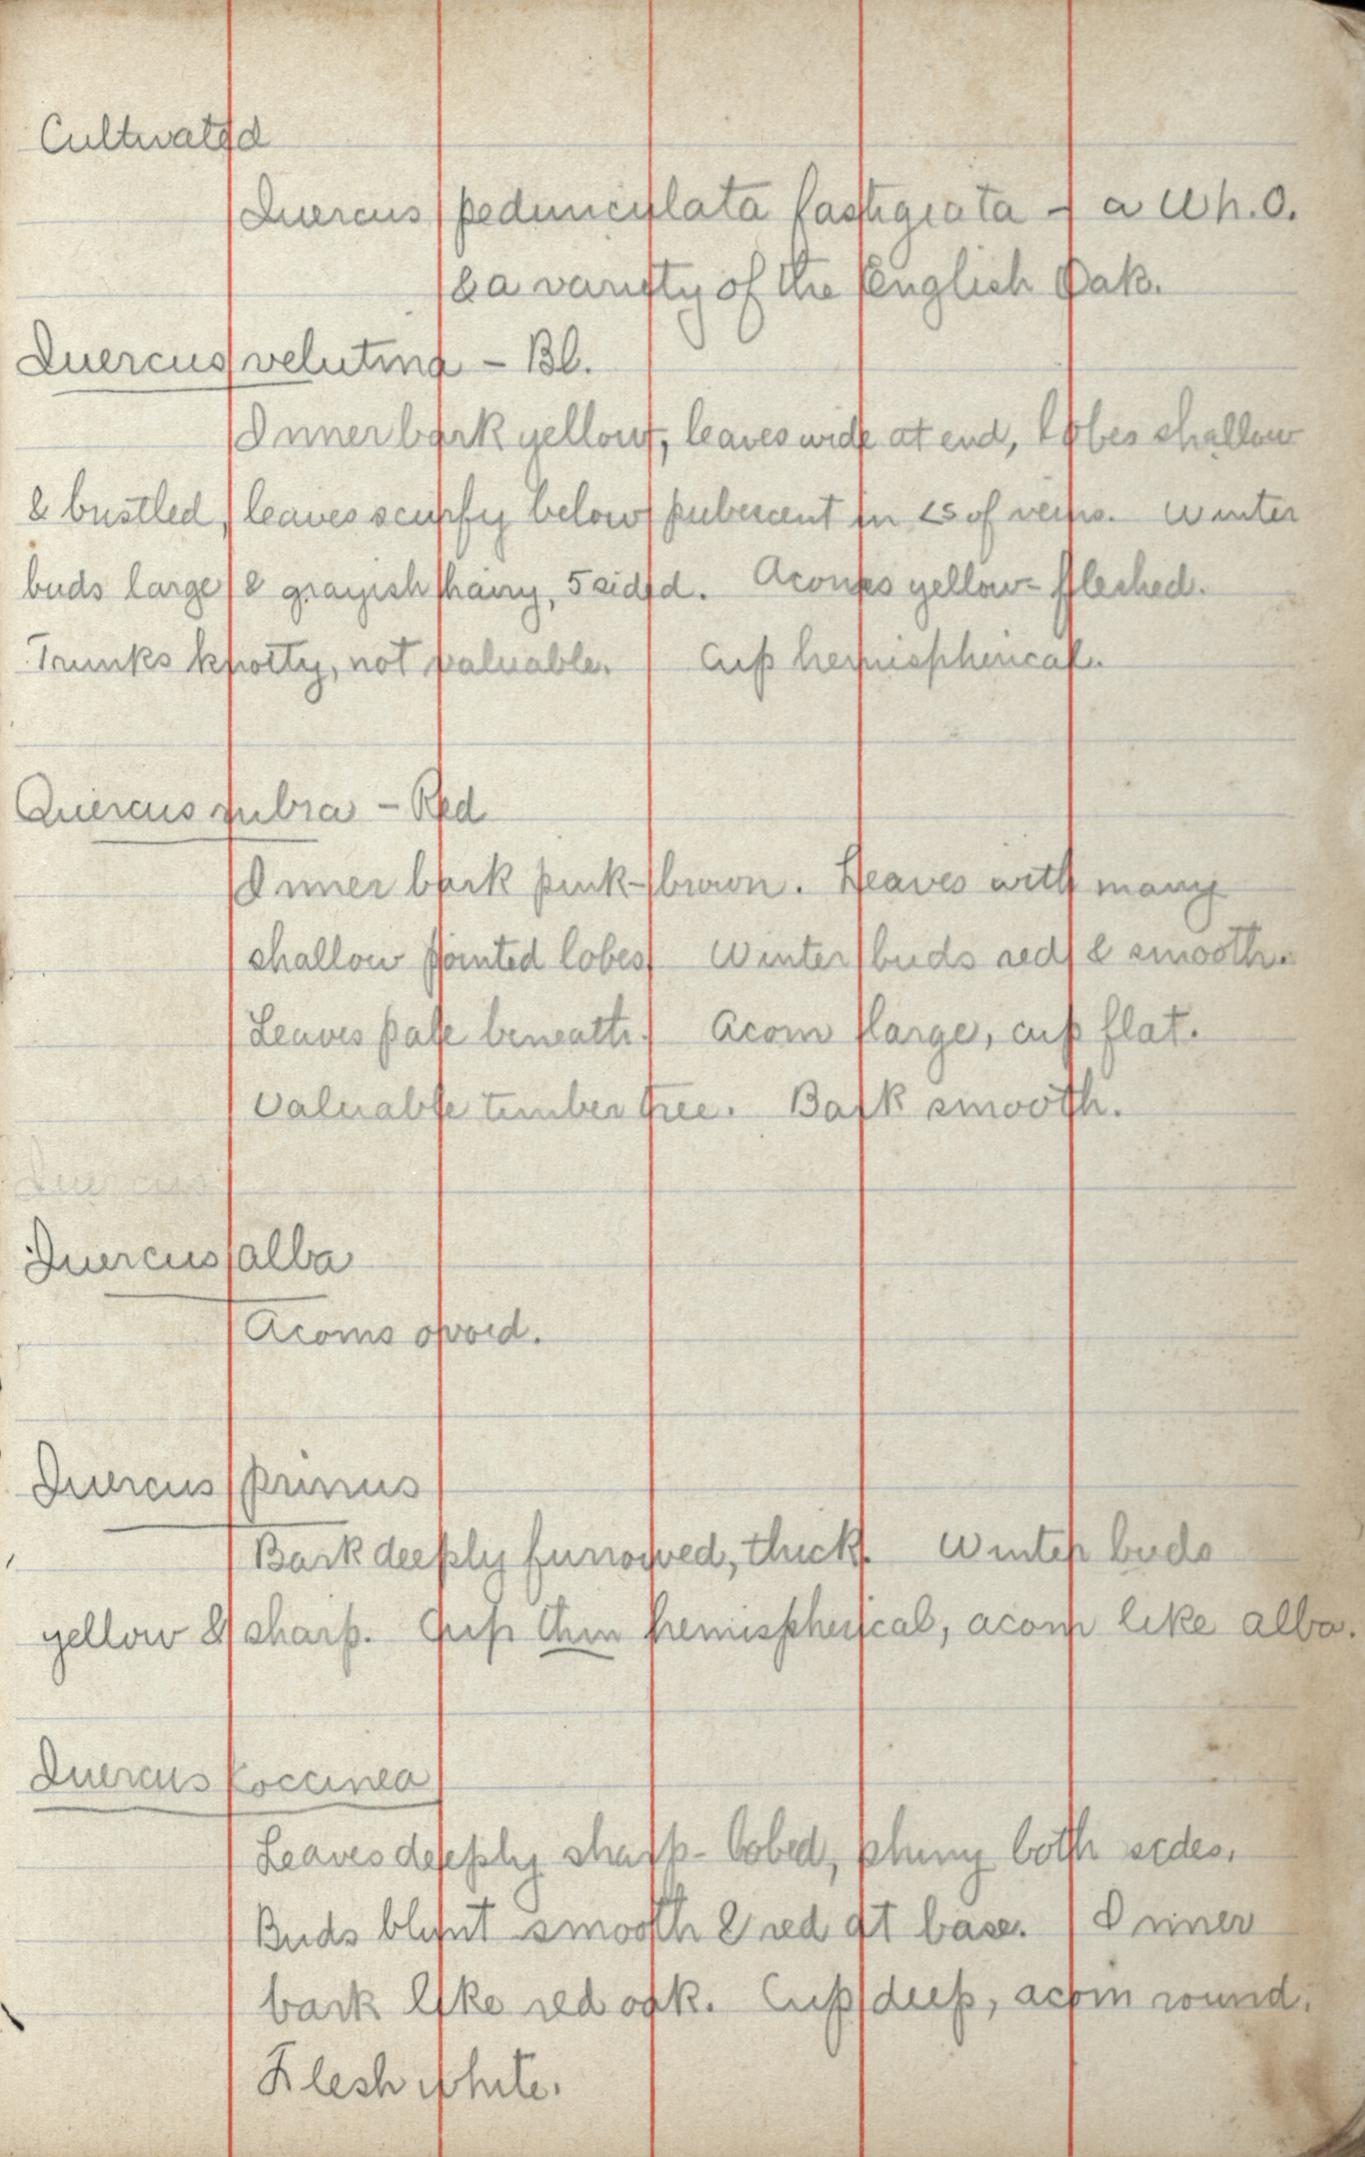 Cultivated
Quercus pedunculata fastigiata - a Wh.O.
& a variety of the English Oak.
Quercus velutina - Bl.
Inner bark yellow, leaves wide at end, lobes shallow
& bristled, leaves scurfy below pubescent in <s of veins. Winter
buds large & grayish hairy, 5 sided. Acorns yellow-fleshed.
Trunks knotty, not valuable. Cup hemispherical.
Quercus rubra - Red
Inner bark pink-brown. Leaves with many
shallow pointed lobes. Winter buds red & smooth.
Leaves pale beneath. Acorn large, cup flat.
Valuable timber tree. Bark smooth.
Quercus
Quercus alba
Acorns ovoid.
Quercus prinus
Bark deeply furrowed, thick. Winter buds
yellow & sharp. Cup thin hemispherical, acorn like alba.
Quercus coccinea
Leaves deeply sharp-lobed, shiny both sides.
Buds blunt smooth & red at base. Inner
bark like red oak. Cup deep, acorn round.
Flesh white.